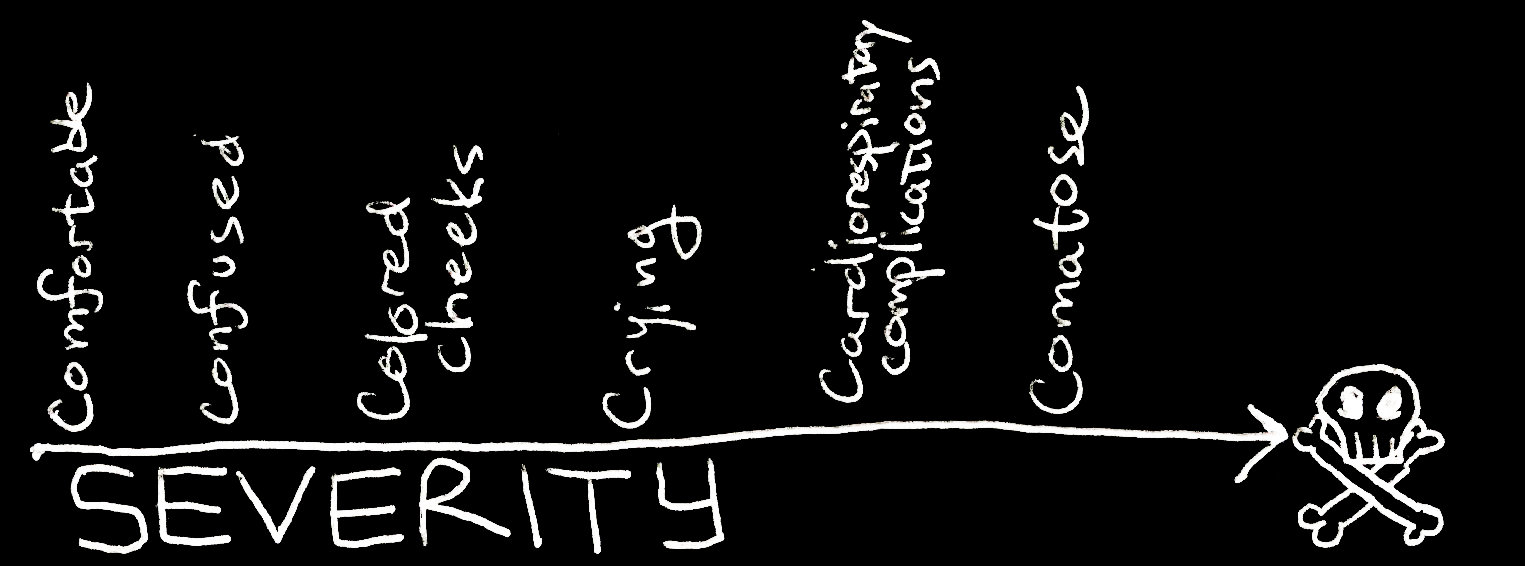 Comfortable
Confused
Colored
cheeks
Crying
Cardiorespiratory
complications
Comatose
SEVERITY